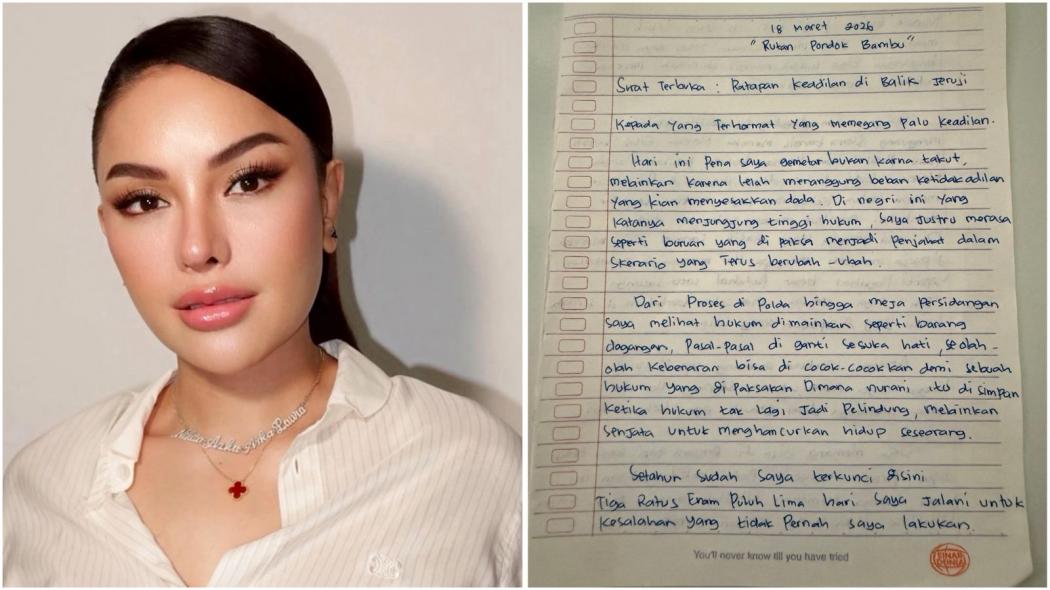 18 Maret 2026
"Rutan Pondok Bambu"
Surat Terbuka : Ratapan Keadilan di Balik Jeruji
Kepada Yang Terhormat Yang memegang Palu Keadilan.
Hari ini Pena saya gemetar bukan karna takut,
melainkan karena lelah menanggung beban ketidakadilan
yang kian menyesakkan dada. Di negri ini yang
katanya menjungjung tinggi hukum, saya justru merasa
seperti buruan yang di paksa menjadi Penjahat dalam
Skenario yang Terus berubah-ubah.
Dari Proses di Polda hingga meja Persidangan
saya melihat hukum dimainkan seperti barang
dagangan, Pasal-Pasal di ganti sesuka hati, seolah-
olah Kebenaran bisa di cocok-cocokkan demi sebuah
hukum yang di paksakan Dimana nurani itu di simpan
Ketika hukum tak lagi Jadi Pelindung, melainkan
Senjata untuk menghancurkan hidup seseorang.
Setahun Sudah Saya terkunci disini
Tiga Ratus Enam Puluh Lima hari saya Jalani untuk
Kesalahan yang tidak Pernah saya lakukan.
You'll never know till you have tried
SINAR
DUNIA